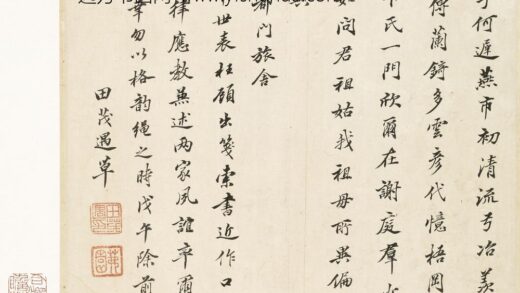 何遲燕市初清流弓冶羡
傳蘭錡多雲彦代憶梧岡
氏一門欣爾在謝庭羣
問君祖姑我祖母所
都門旅舍
世表枉顧出箋索書近作口
律應教兼述两家夙誼率爾
勿以格韵繩之時戊午除前
田茂遇草